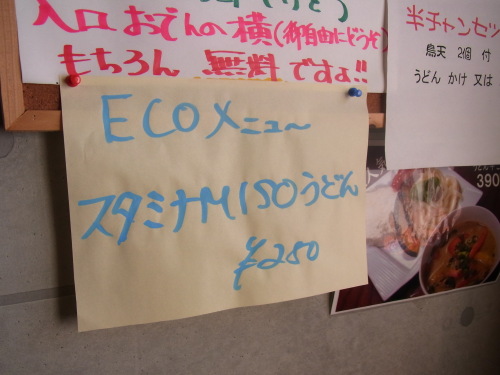 入口おでんの横(御自由にどうぞ)
もちろん 無料ですよ!!
ECOメニュー
スタミナMISOうどん
¥250
半チャンセッ
鳥天 2個 付
うどん かけ 又は
390